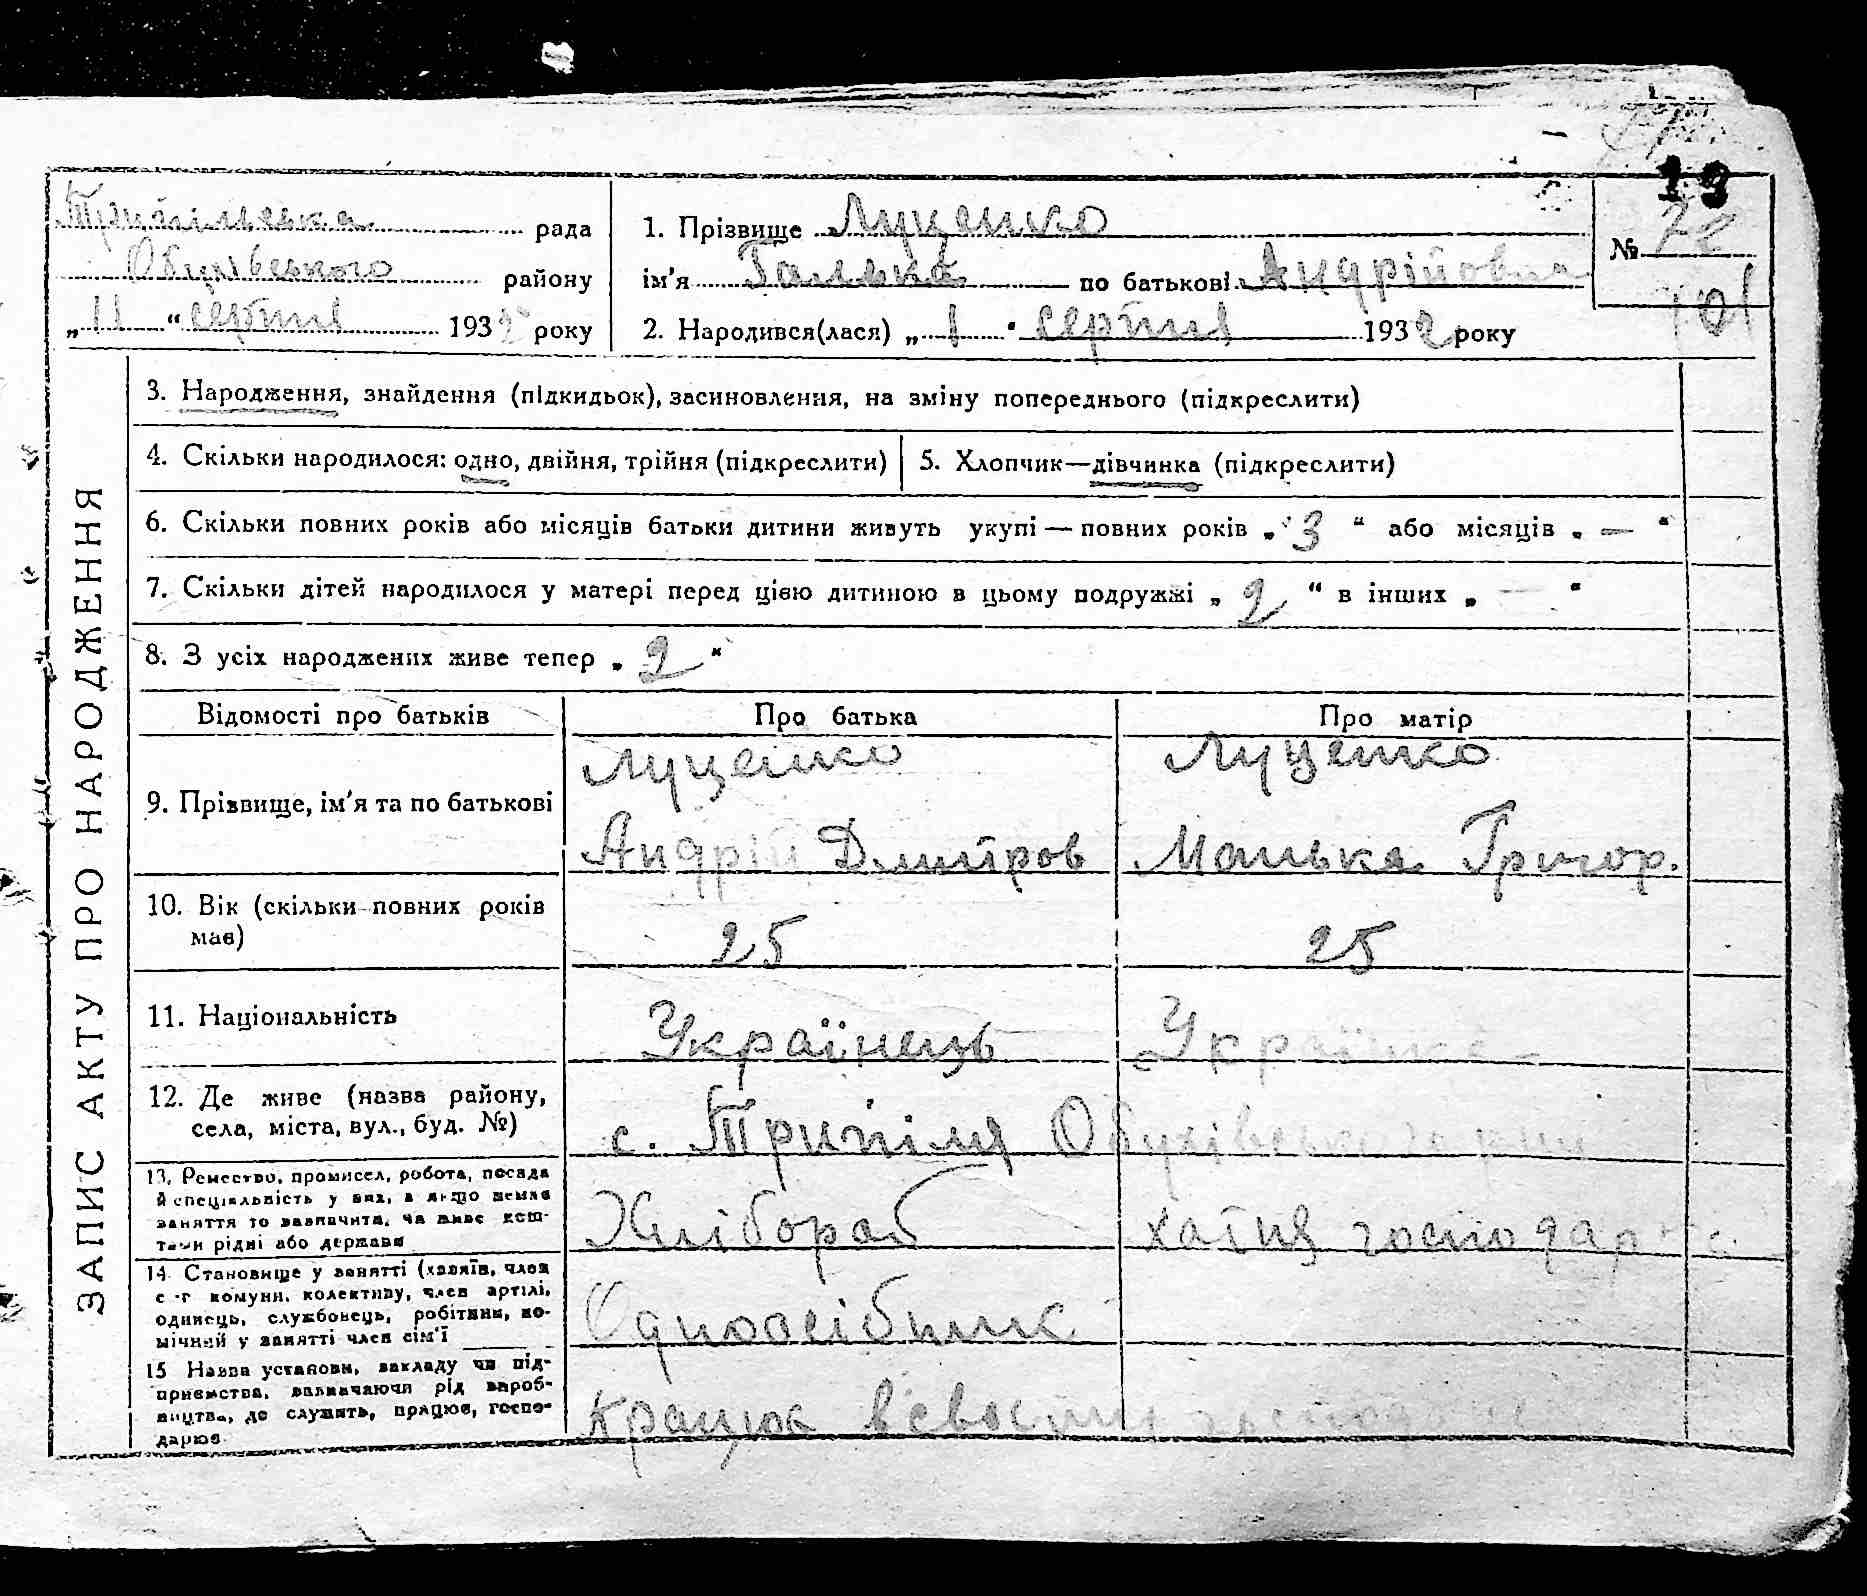 19
Трипільська рада
Обухівського району
„11“ серпня 1932 року
1. Прізвище Луценко
ім'я Галька по батькові Андрійовна
2. Народився(лася) „1“ серпня 1932 року
№ 72
101
ЗАПИС АКТУ ПРО НАРОДЖЕННЯ
3. Народження, знайдення (підкидьок), засиновлення, на зміну попереднього (підкреслити)
4. Скільки народилося: одно, двійня, трійня (підкреслити)
5. Хлопчик—дівчинка (підкреслити)
6. Скільки повних років або місяців батьки дитини живуть укупі — повних років „3“ або місяців „—“
7. Скільки дітей народилося у матері перед цією дитиною в цьому подружжі „2“ в інших „—“
8. З усіх народжених живе тепер „2“
Відомості про батьків Про батька Про матір
9. Прізвище, ім'я та по батькові
Луценко
Андрій Дмитров
Луценко
Манька Григор.
10. Вік (скільки повних років
має)
25 25
11. Національність Українець Українка
12. Де живе (назва району,
села, міста, вул., буд. №)
с. Трипілля Обухівського району
13. Ремество, промисел, робота, посада
й спеціяльність у них, а якщо немає
заняття то зазначити, чи живе кош-
тами рідні або держави
Хлібороб хатня господарка
14. Становище у занятті (хазяїн, член
с.-г комуни, колективу, член артілі,
одинець, службовець, робітник, по-
мічний у занятті член сім'ї
Одноосібник
15 Назва установи, закладу чи під-
приємства, зазначаючи рід вироб-
ництва, де служить, працює, госпо-
дарює
працює в своєму господарстві